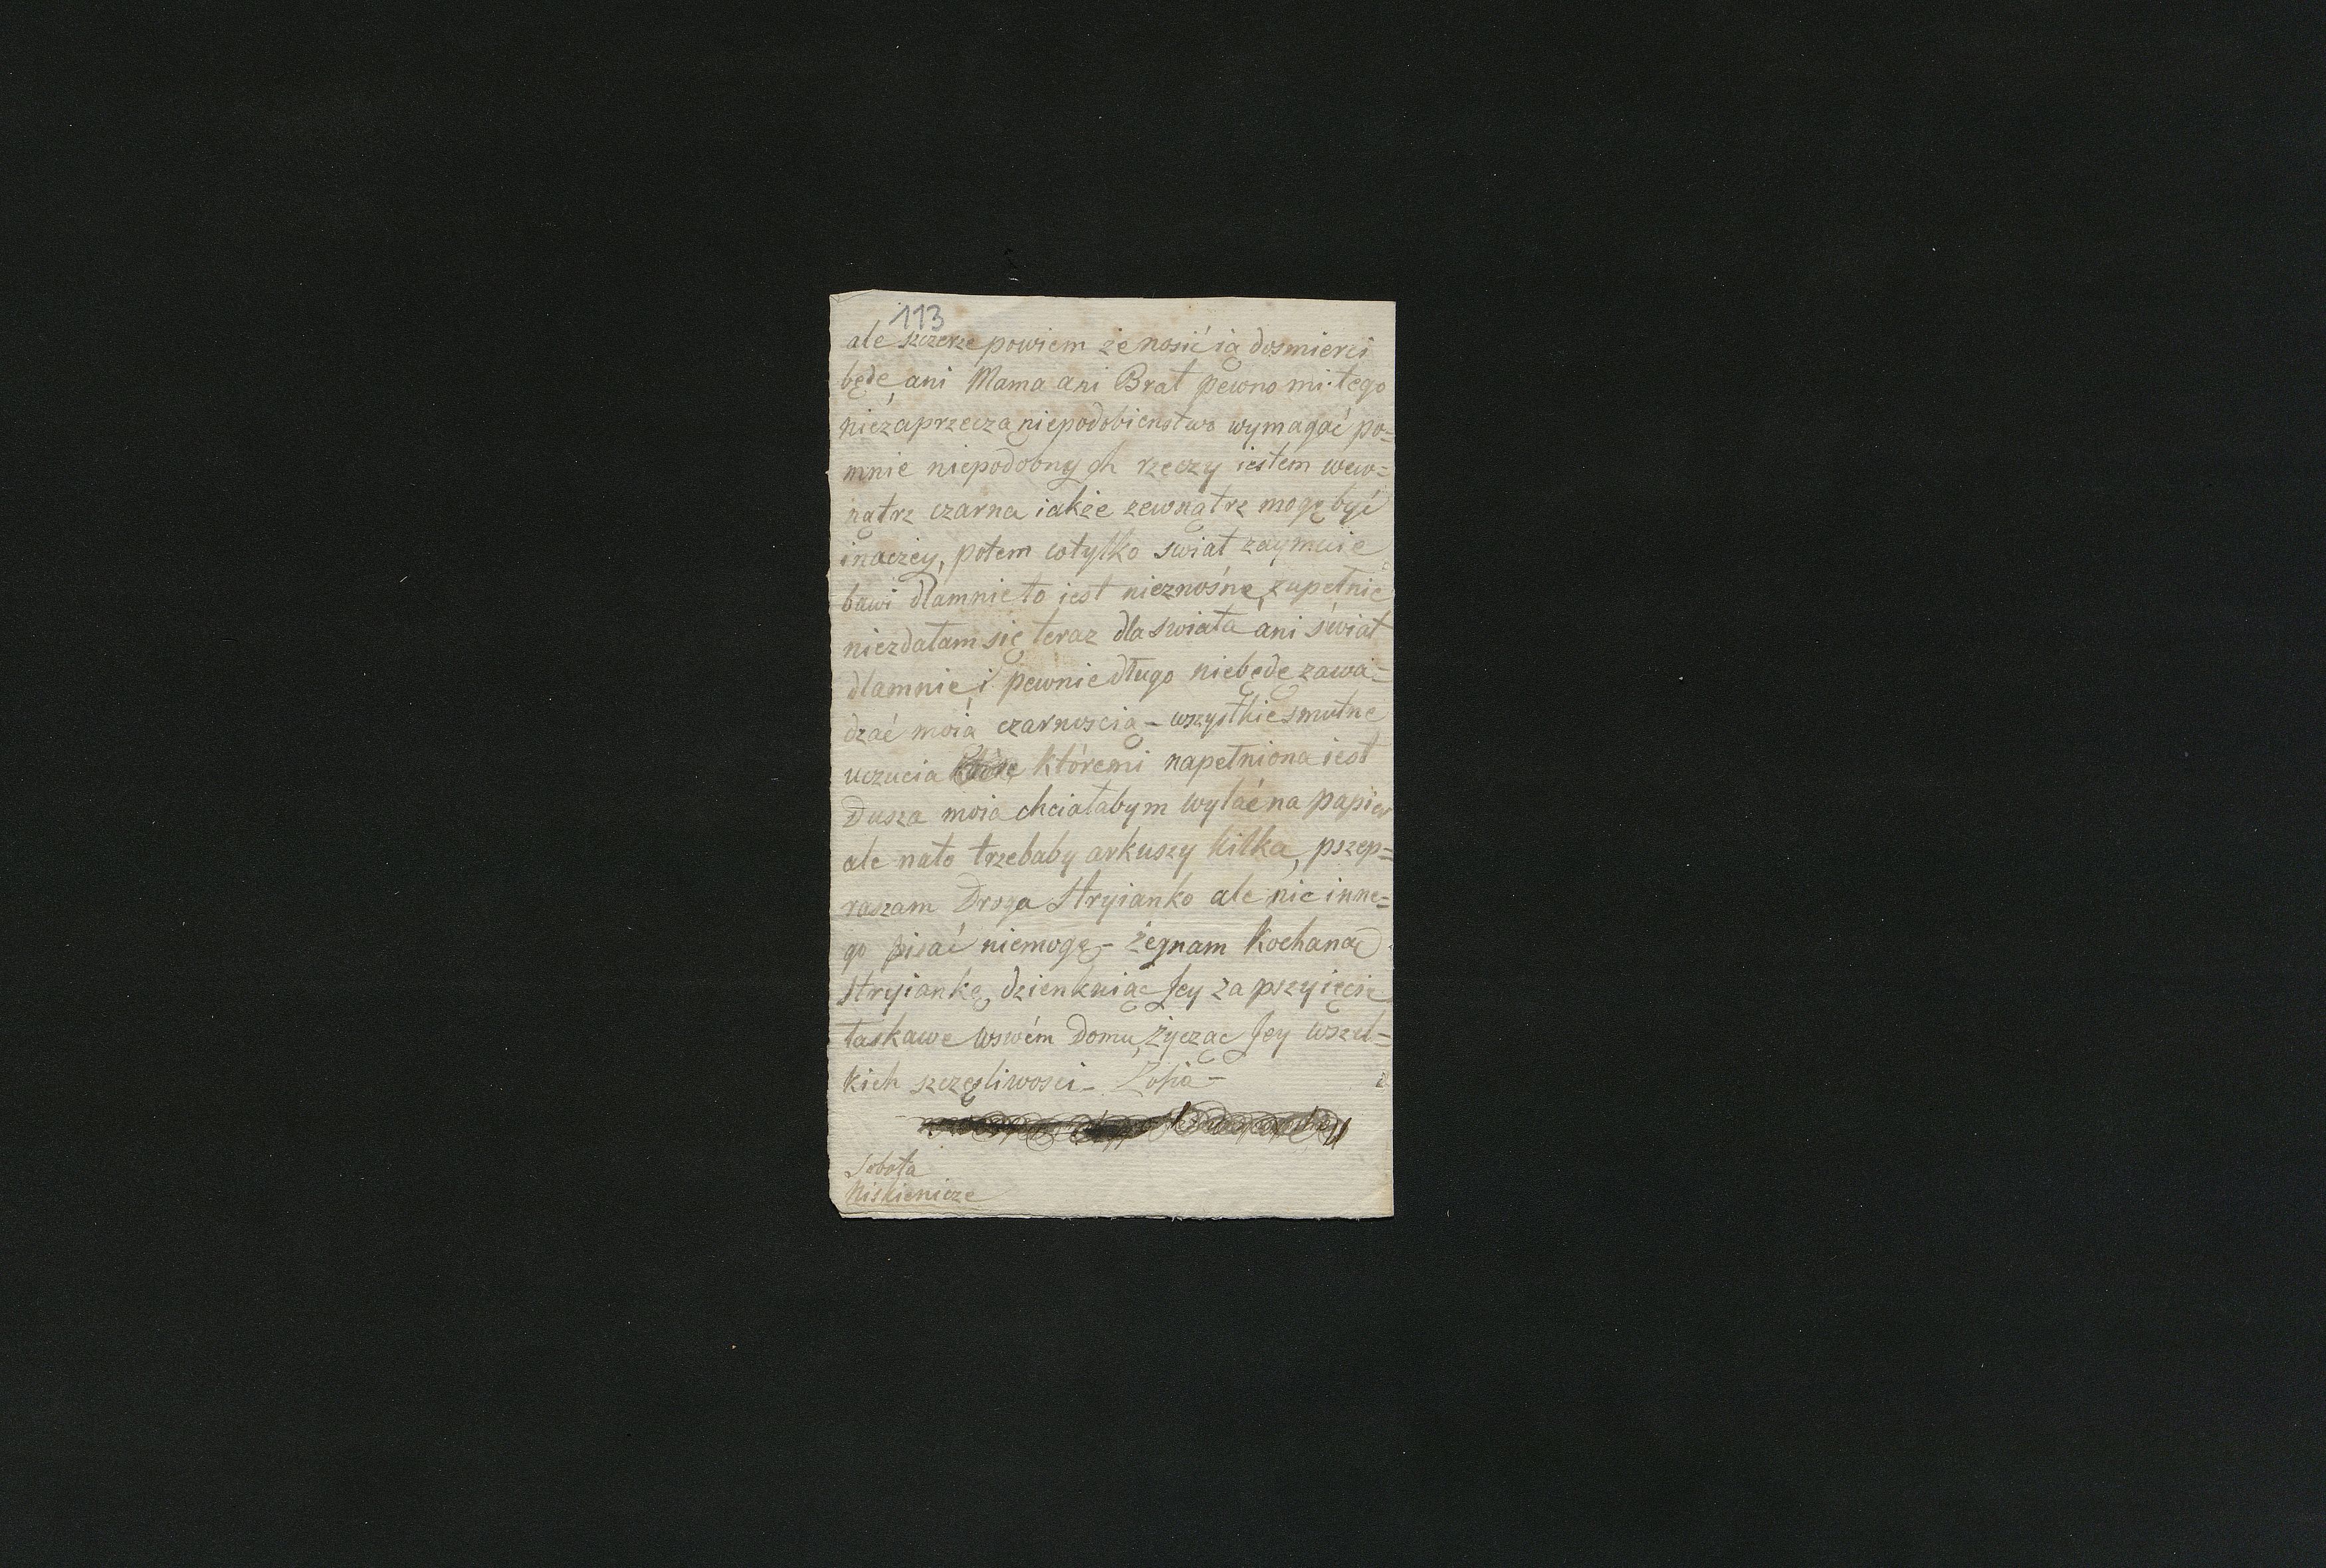 113
ale szczerze powiem że nosić ią do smierci
będę, ani Mama ani Brat pewno mi tego
niezaprzeczą niepodobienstwo wymagać po=
mnie niepodobnych rzeczy iestem wew=
nątrz czarna iakże zewnątrz mogę być
inaczey, potem cotylko swiat zaymuie
bawi dlamnie to iest nieznośne, zupełnie
niezdałam się teraz dla swiata ani świat
dlamnie i pewnie długo niebędę zawa=
dzać moią czarnoscią – wszystkie smutne
uczucia któremi napełniona iest
Dusza moia chciałabym wylać na papier
ale nato trzebaby arkuszy kilka, pszep=
raszam Droga Stryianko ale nic inne=
go pisać niemogę – żegnam Kochaną
Stryiankę, dzienkuiąc Jey za pszyięcie
łaskawe wswém Domu, życząc Jey wszel=
kich szczęsliwosci – Zofia –
Sobota
Niskienicze